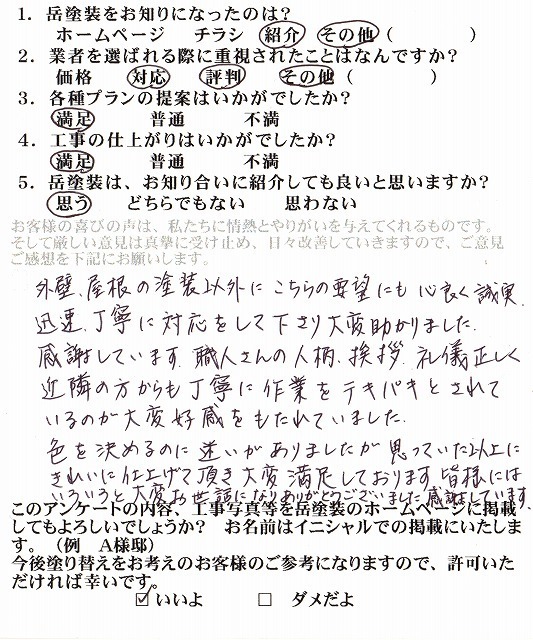 1．岳塗装をお知りになったのは？
ホームページ　チラシ　紹介　その他（　　　　）
2．業者を選ばれる際に重視されたことはなんですか？
価格　対応　評判　その他（　　　　）
3．各種プランの提案はいかがでしたか？
満足　普通　不満
4．工事の仕上がりはいかがでしたか？
満足　普通　不満
5．岳塗装は、お知り合いに紹介しても良いと思いますか？
思う　どちらでもない　思わない
お客様の喜びの声は、私たちに情熱とやりがいを与えてくれるものです。
そして厳しい意見は真摯に受け止め、日々改善していきますので、ご意見
ご感想を下記にお願いします。
外壁、屋根の塗装以外にこちらの要望にも心良く誠実、
迅速、丁寧に対応をして下さり大変助かりました。
感謝しています。職人さんの人柄、挨拶、礼儀正しく
近隣の方からも丁寧に作業をテキパキとされて
いるのが大変好感をもたれていました。
色を決めるのに迷いがありましたが思っていた以上に
きれいに仕上げて頂き大変満足しております。皆様には
いろいろと大変お世話になりありがとうございました。感謝しています。
このアンケートの内容、工事写真等を岳塗装のホームページに掲載
してもよろしいでしょうか？　お名前はイニシャルでの掲載にいたしま
す。（例　A様邸）
今後塗り替えをお考えのお客様のご参考になりますので、許可いた
だければ幸いです。
☑ いいよ　□ ダメだよ